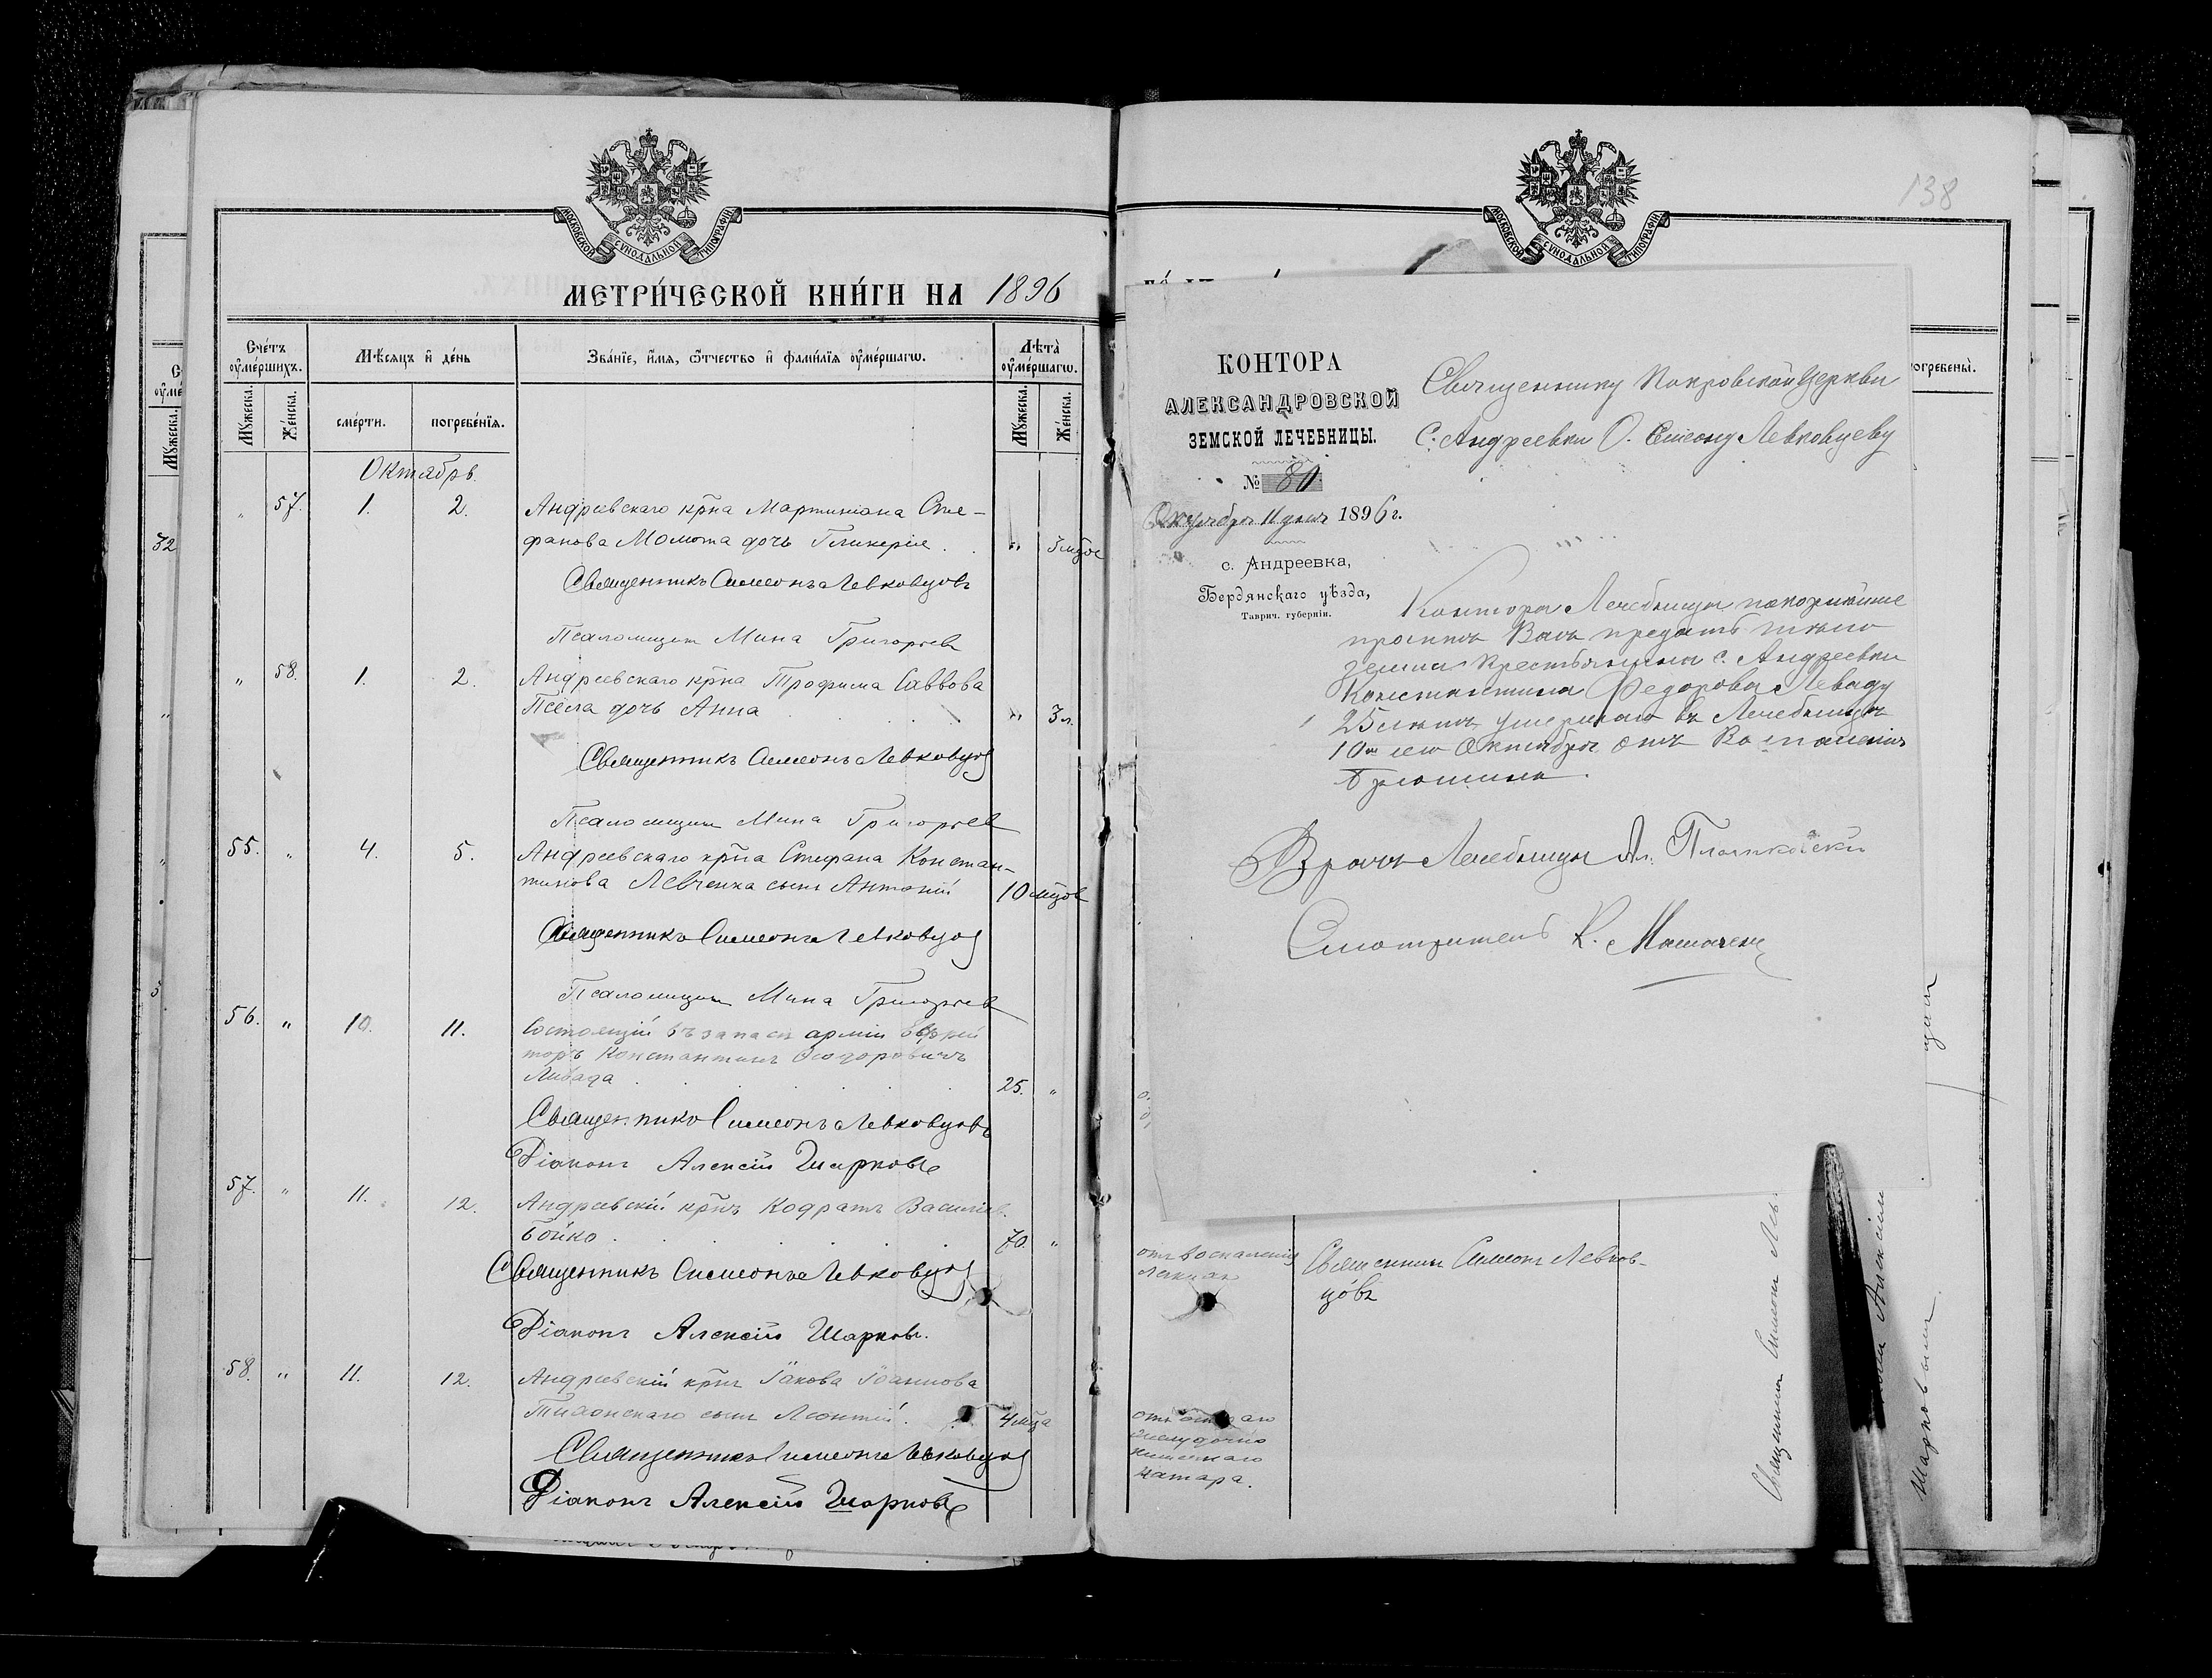 МОСКОВСКОЙ СѴНОДАЛЬНОЙ ТИПОГРАФІИ
МЕТРИ́ЧЕСКОЙ КНИ́ГИ НА 1896
Сче́тъ ᲂу҆ме́ршихъ.
Мѣ́сяцъ и҆ де́нь
Зва́нїе, и҆́мѧ, ѻ҆́тчество и҆ фами́лїѧ ᲂу҆ме́ршагѡ.
Лѣта̀ ᲂу҆ме́ршагѡ.
Мꙋ́жеска.
Же́нска.
сме́рти.
погребе́нїѧ.
Мꙋ́жеска.
Же́нска.
Октябрь.
" 57. 1. 2. Андреевскаго кр̃на Мартиніана Сте-
фанова Момота дочь Гликерія . . " 3 мц̃ов
Священникъ Симеонъ Левковцовъ
Псаломщик Мина Григорьев
" 58. 1. 2. Андреевскаго кр̃на Трофима Саввова
Псёла дочь Анна . . . . " 3 л.
Священникъ Симеонъ Левковцов
Псаломщик Мина Григорьев
55. " 4. 5. Андреевскаго кр̃на Стефана Констан-
тинова Левченка сынъ Антоній 10 мц̃ов
Священникъ Симеонъ Левковцов
Псаломщик Мина Григорьев
56. " 10. 11. Состоящій въ запасѣ арміи
Константинъ Ѳеодоровичъ
Ливада . . . . . . 25. "
Священникъ Симеонъ Левковцовъ
Діаконъ Алексій Шарковъ
57. " 11. 12. Андреевскій кр̃нъ Кодратъ Василіев.
Бойко . . . . . . 70. "
Священникъ Симеонъ Левковцов
Діаконъ Алексій Шарковъ.
58. " 11. 12. Андреевскій кр̃нъ Іакова Іоаннова
сынъ Леонтій. . 4 мц̃а
Священникъ Симеонъ Левковцов
Діаконъ Алексій Шарковъ
МОСКОВСКОЙ СѴНОДАЛЬНОЙ ТИПОГРАФІИ
138
КОНТОРА
АЛЕКСАНДРОВСКОЙ
ЗЕМСКОЙ ЛЕЧЕБНИЦЫ.
№ 80.
Октября 11 дня 1896 г.
с. Андреевка,
Бердянскаго уѣзда,
Таврич. губерніи.
Священнику Покровской Церкви
С. Андреевки О. Симеону Левковцеву
Контора Лечебницы покорнѣйше
проситъ Васъ предать тѣло
землѣ крестьянина с. Андреевки
Константина Федорова Леваду
25 лѣтъ умершаго въ Лечебницѣ
10го сего Октября отъ Воспаленія
брюшины.
Врачъ Лечебницы Ал.
Смотритель К.
отъ воспаленія
легких
Священник Симеонъ Левков-
цовъ
желудочно
кишечнаго
катара.
Священникъ Симеонъ
Алексіем
Шарковымъ.